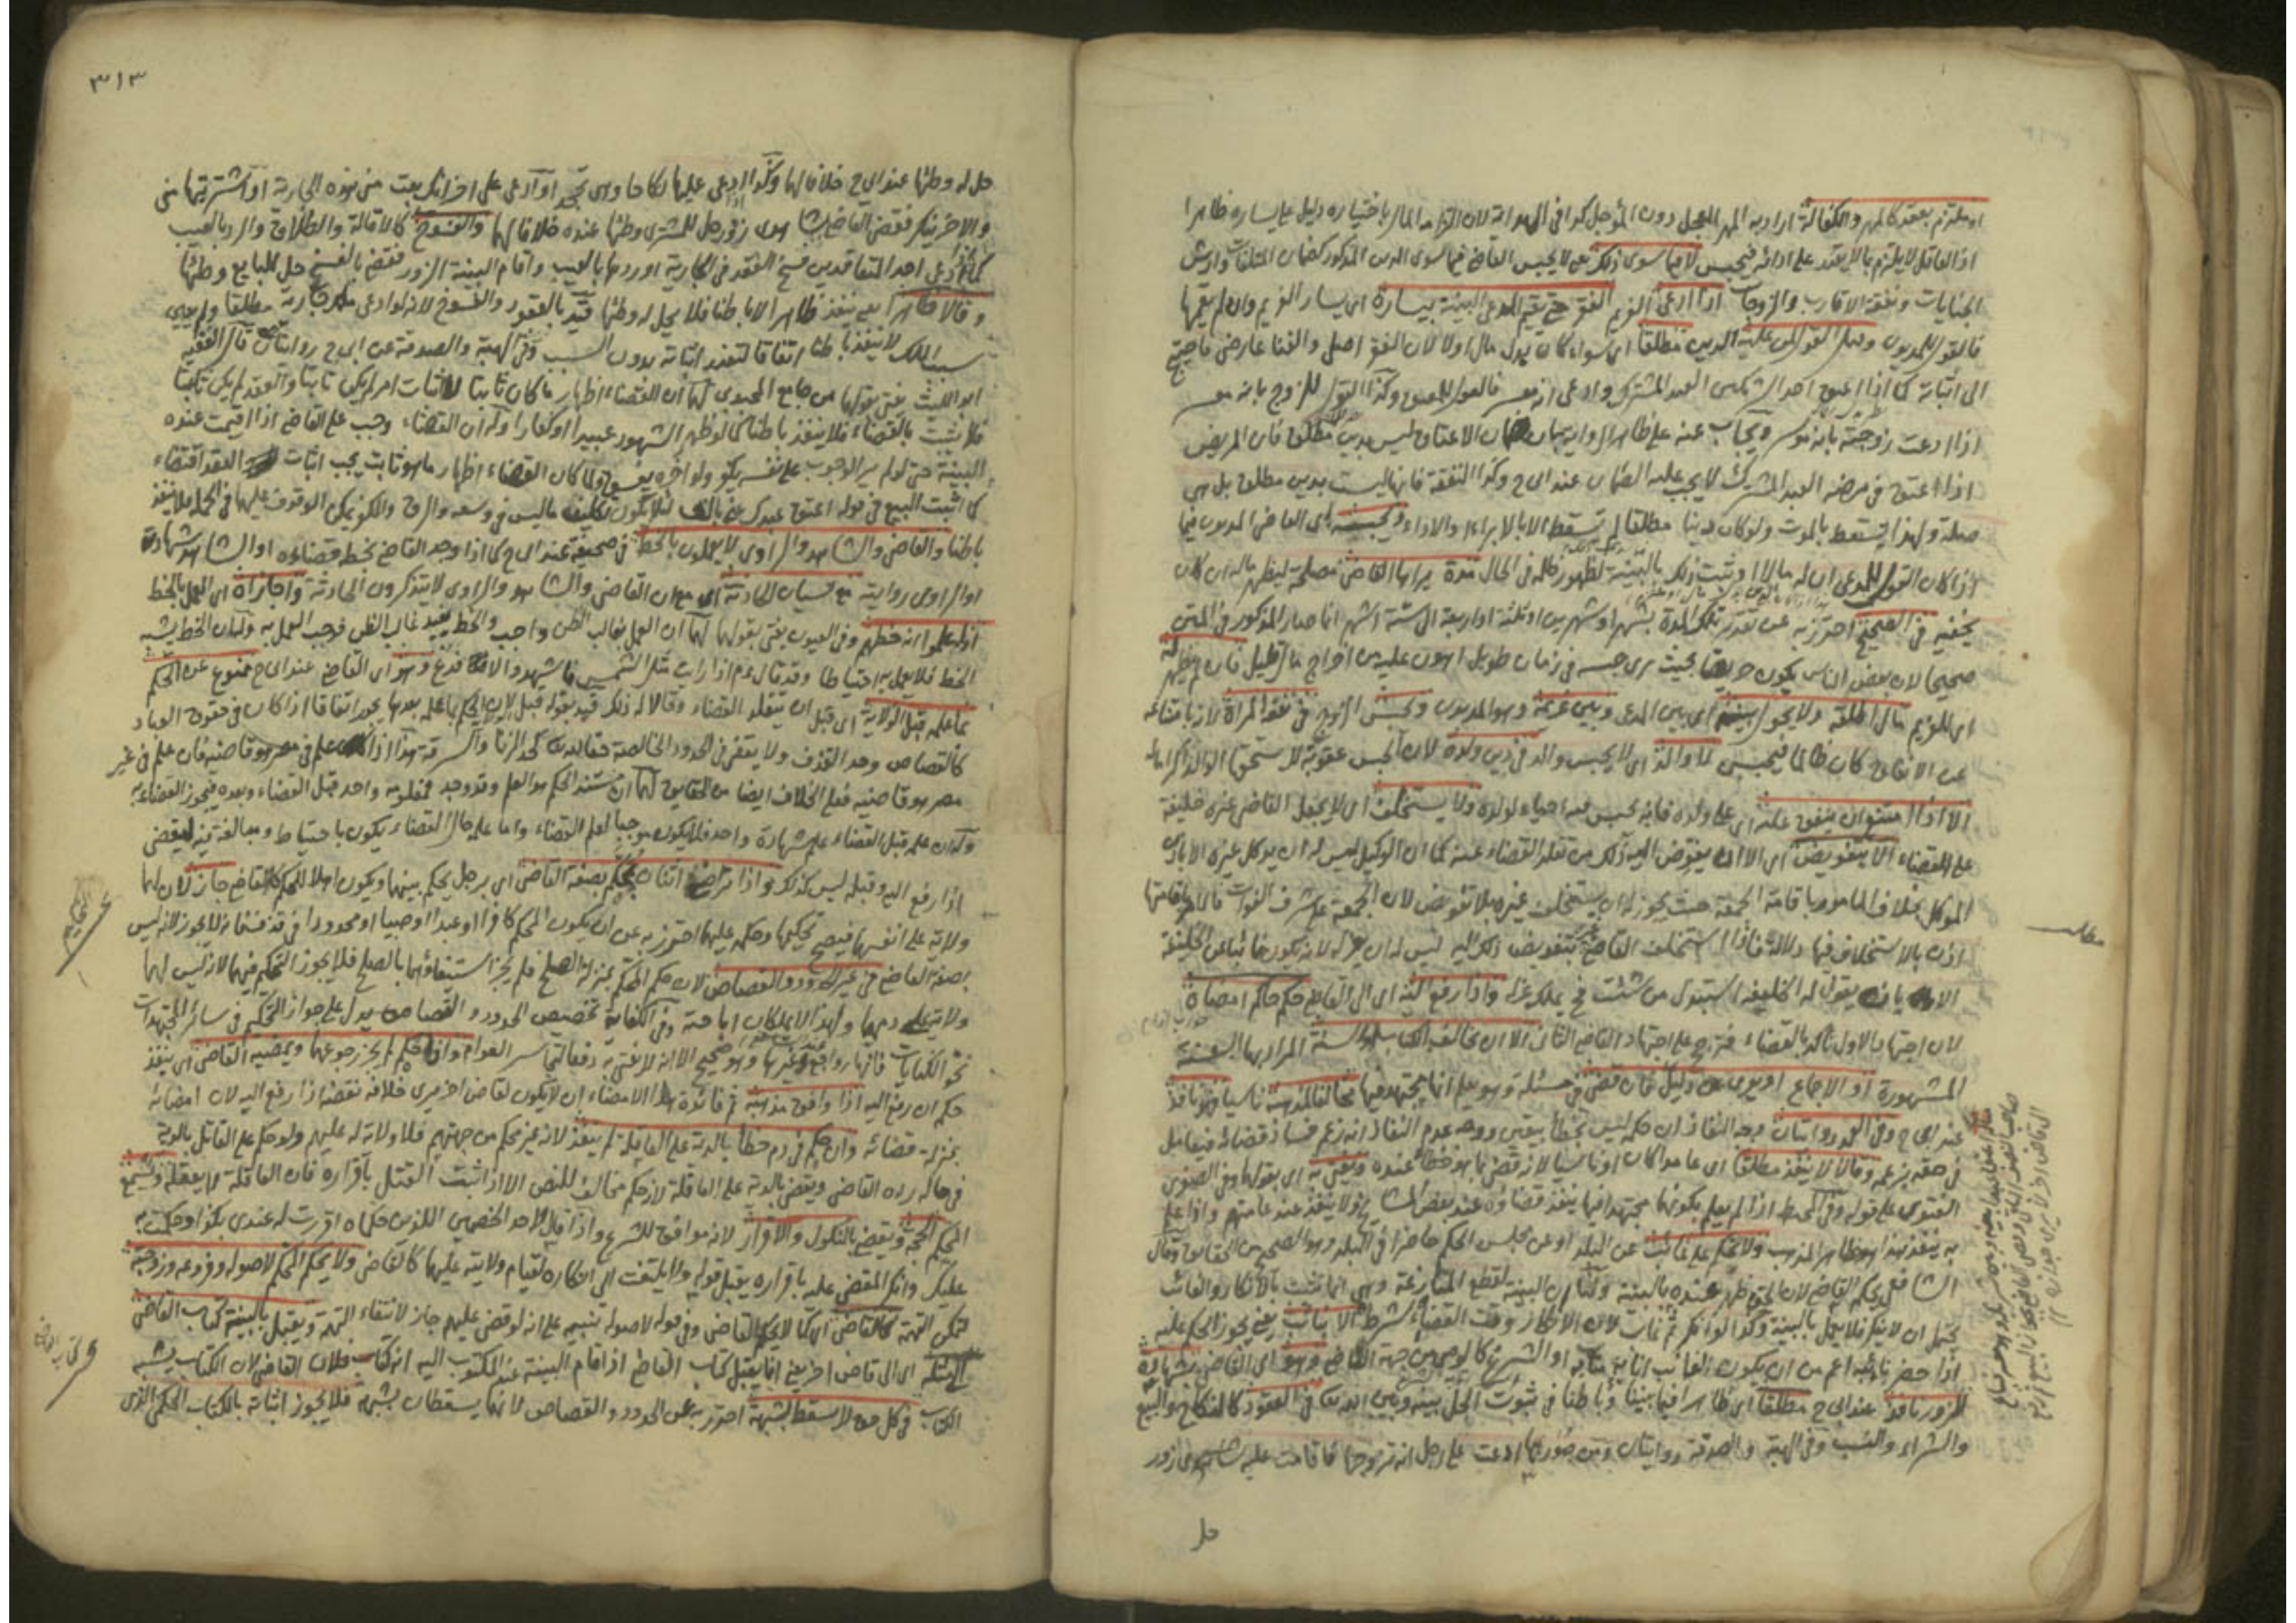 او ملتزم بعقد كالمهر والكفالة اراد به المهر المعجل دون المؤجل كذا في الهداية لان التزام المال باختياره دليل على يساره ظاهرا
اذ العاقل لا يلتزم ما لا يقدر على ادائه فيحبس لا فيما سوى ذلك يعني لا يحبس القاضي فيما سوى الدين المذكور كضمان المتلفات وارش
الجنايات ونفقة الاقارب والزوجات اذا ادعى الغريم الفقر حتى يقيم المدعي البينة بيساره اي يسار الغريم وان لم يقمها
فالقول للمديون وقيل القول لمن عليه الدين مطلقا اي سواء كان بدل مال او لا لان الفقر اصلي والغنا عارضي فاحتيج
الى اثباته كما اذا اعتق احد الشريكين العبد المشترك وادعى انه معسر فالقول للمعتق وكذا القول للزوج بانه معسر
اذا ادعت زوجته بانه موسر ويجاب عنه على ظاهر الرواية بان ضمان الاعتاق ليس بدين مطلق فان المريض
اذا اعتق في مرضه العبد المشترك لا يجب عليه الضمان عند ابي ح وكذا النفقة فانها ليست بدين مطلق بل هي
صلة ولهذا يسقط بالموت ولو كان دينا مطلقا لم تسقط الا بالابراء والاداء ويحبسه اي القاضي المديون فيما
اذا كان القول للمدعي ان له مالا او ثبت ذلك بالبينة لظهور ظلمه في الحال مدة يراها القاضي مصلحة ليظهر ماله ان كان
يخفيه في الصحيح احترز به عن تقدير تلك المدة بشهر او شهرين او ثلثة او اربعة الى ستة اشهر انما صار المذكور في المتن
صحيحا لان بعض الناس يكون بحيث يرى حبسه في زمان طويل اهون عليه من اخراج مال قليل فان لم يظهر له
اي للغريم مال اطلقه ولا يحول بينه اي بين المدعي وبين غريمه وهو المديون وحبس الزوج في نفقة المرأة لان بامتناعه
عن الانفاق كان ظالما فيحبس لا والد اي لا يحبس والد في دين ولده لان الحبس عقوبة لا يستحق الوالد
الا اذا امتنع ان ينفق عليه اي على ولده فانه يحبس فيه احياء لولده ولا يستخلف اي لا يجعل القاضي غيره خليفة
على القضاء الا بتفويض اي الا ان يفوض اليه ذلك من تقلد القضاء عنه كما ان الوكيل ليس له ان يوكل غيره الا باذن
الموكل بخلاف المأمور باقامة الجمعة حيث يجوز له ان يستخلف غيره بلا تفويض لان الجمعة على شرف الفوات فالامر باقامتها
اذن بالاستخلاف فيها دلالة فاذا استخلف القاضي بتفويض ذلك اليه ليس له ان يعزله لانه يكون نائبا عن الخليفة
الا ان يقول له الخليفة استبدل من شئت فح يملك عزله واذا رفع اليه اي الى القاضي حكم حاكم امضاه
لان اجتهاد الاول تأكد بالقضاء فترجح على اجتهاد القاضي الثاني الا ان يخالف الكتاب او السنة المراد بها السنة
المشهورة او الاجماع او يعرى عن دليل فان قضى في مسئلة وهو يعلم انها مجتهد فيها مخالفا لمذهبه ناسيا فهو نافذ
عند ابي ح وفي العمد روايتان وجه النفاذ ان حكمه ليس بخطأ بيقين ووجه عدم النفاذ انه زعم فساد قضائه فيعامل
في حقه بزعمه وقالا لا ينفذ مطلقا اي عامدا كان او ناسيا لانه قضى بما هو خطأ عنده ويفتى به اي بقولهما وفي الصغرى
الفتوى على قوله وفي المحيط اذا لم يعلم بكونها مجتهدا فيها ينفذ قضاؤه عند بعض المشايخ ولا ينفذ عند عامتهم واذا علم
به ينفذ هذا هو ظاهر المذهب ولا يحكم على غائب عن البلد او عن مجلس الحكم حاضرا في البلد وهو الصحيح من الحقايق وقال
الشافعي يحكم القاضي لان الحق ظهر عنده بالبينة ولنا ان البينة لقطع المنازعة وهي انما تثبت بالانكار والغائب
يحتمل ان لا ينكر فلا يعمل بالبينة وكذا لو انكر ثم غاب لان الانكار وقت القضاء شرط الا بنائبه يعني يجوز الحكم عليه
اذا حضر نائبه اعم من ان يكون الغائب انابه منابه او الشرع كالوصي من جهة القاضي وهو اي القاضي بشهادة
الزور نافذ عند ابي ح مطلقا اي ظاهرا فيما بيننا وباطنا في ثبوت الحل بينه وبين الله في العقود كالنكاح والبيع
والشراء والنسب وفي الهبة والصدقة روايتان ومن صورها ادعت على رجل انه تزوجها فاقامت عليه شاهدي زور
حل
مطلب
٣١٣
حل له وطئها عند ابي ح خلافا لهما وكذا اذا ادعى عليها نكاحا وهي تجحد او ادعى على اخر انك بعت مني هذه الجارية او اشتريتها مني
والاخر ينكر فقضى القاضي بشاهدي زور حل للمشتري وطئها عنده خلافا لهما والفسوخ كالاقالة والطلاق والرد بالعيب
كما اذا ادعى احد المتعاقدين فسخ العقد في الجارية او ردها بالعيب واقام البينة الزور فقضى بالفسخ حل للبايع وطئها
وقالا ظاهرا يعني ينفذ ظاهرا لا باطنا فلا يحل له وطئها قيد بالعقود والفسوخ لانه لو ادعى ملك جارية مطلقا ولم يعين
سبب الملك لا ينفذ باطنا اتفاقا لتعذر اثباته بدون السبب وفي الهبة والصدقة عن ابي ح روايتان قال الفقيه
ابو الليث يفتى بقولهما من جامع المحبوبي لهما ان القضاء اظهار ما كان ثابتا لا اثبات امر لم يكن ثابتا والعقد لم يكن ثابتا
فلا يثبت بالقضاء فلا ينفذ باطنا كما لو ظهر الشهود عبيدا او كفارا وله ان القضاء وجب على القاضي اذا اقيمت عنده
البينة حتى لو لم ير الوجوب على نفسه يكفر ولو اخره يفسق ولما كان القضاء اظهار ما هو ثابت يجب اثبات العقد اقتضاء
كما اثبت البيع في قوله اعتق عبدك عني بالف لئلا يكون تكليف ما ليس في وسعه والرق والكفر يمكن الوقوف عليهما في الجملة فلا ينفذ
باطنا والقاضي والشاهد والراوي لا يعملون بالخط في صحيفة عند ابي ح كما اذا وجد القاضي بخطه قضاءه او الشاهد شهادته
او الراوي روايته مع نسيان الحادثة اي مع ان القاضي والشاهد والراوي لا يتذكرون الحادثة واجازاه اي العمل بالخط
اذا علموا انه خطهم وفي العيون يفتى بقولهما لهما ان العمل بغالب الظن واجب والخط يفيد غالب الظن فوجب العمل به وله ان الخط يشبه
الخط فلا يعمل به احتياطا وقد قال ءم اذا رايت مثل الشمس فاشهد والا فدع وهو اي القاضي عند ابي ح ممنوع عن الحكم
بما علمه قبل الولاية اي قبل ان يتقلد القضاء وقالا له ذلك قيد بقوله قبل لان الحكم بما علمه بعدها يجوز اتفاقا اذا كان في حقوق العباد
كالقصاص وحد القذف ولا يقضى في الحدود الخالصة لله كحد الزنا والسرقة هذا اذا علم في مصر هو قاضيه فان علم في غير
مصر هو قاضيه فعلى الخلاف ايضا من الحقايق لهما ان مستند الحكم هو العلم وقد وجد فعلمه واحد قبل القضاء وبعده فيجوز القضاء به
وله ان علمه قبل القضاء علم شهادة واحد فلا يكون موجبا لعلم القضاء واما علمه حال القضاء يكون باحتياط ومبالغة فيه ليقضي
اذا رفع اليه وقبله ليس كذلك واذا تراضى اثنان بمحكم بصفة القاضي اي برجل يحكم بينهما ويكون اهلا للحكم كالقاضي جاز لان لهما
ولاية على انفسهما فيصح تحكيمهما وحكمه عليهما احترز به عن ان يكون المحكم كافرا او عبدا او صبيا او محدودا في قذف فانه لا يجوز لانه ليس
بصفة القاضي في غير الحدود والقصاص لان حكم المحكم بمنزلة الصلح فلم يجز استيفاؤهما بالصلح فلا يجوز التحكيم فيهما لانه ليس لهما
ولاية على دمهما ولهذا لا يملكان اباحته وفي الكفاية تخصيص الحدود والقصاص يدل على جواز التحكيم في سائر المجتهدات
نحو الكنايات فانها رواجع وغيرها وهو صحيح الا انه لا يفتى به دفعا لتجاسر العوام واذا حكم لم يجز رجوعهما ويمضيه القاضي اي ينفذ
حكمه ان رفع اليه اذا وافق مذهبه ثم فائدة هذا الامضاء ان لا يكون لقاض اخر يرى خلافه نقضه اذا رفع اليه لان امضائه
بمنزلة قضائه وان حكم في دم خطأ بالدية على العاقلة لم ينفذ لانه غير محكم من جهتهم فلا ولاية له عليهم ولو حكم على القاتل بالدية
في ماله رده القاضي ويقضي بالدية على العاقلة لانه حكم مخالف للنص الا اذا ثبت القتل باقراره فان العاقلة لا يعقله ويسمع
المحكم الحجة ويقضي بالنكول والاقرار لانه موافق للشرع واذا قال لاحد الخصمين اللذين حكماه اقررت له عندي بكذا وحكمت به
عليك وانكر المقضي عليه باقراره يقبل قوله ولا يلتفت الى انكاره لقيام ولايته عليهما كالقاضي ولا يحكم المحكم لاصوله وفروعه وزوجته
لتمكن التهمة كالقاضي اي كما لا يحكم القاضي وفي قوله لاصوله تنبيه على انه لو قضى عليهم جاز لانتفاء التهمة ويقبل بالبينة كتاب القاضي
الى مثله اي الى قاض اخر يعني انما يقبل كتاب القاضي اذا اقام البينة عند المكتوب اليه انه كتاب فلان القاضي لان الكتاب يشبه
الكتاب في كل حق لا يسقط بشبهة احترز به عن الحدود والقصاص لانهما يسقطان بشبهة فلا يجوز اثباته بالكتاب الحكمي الذي